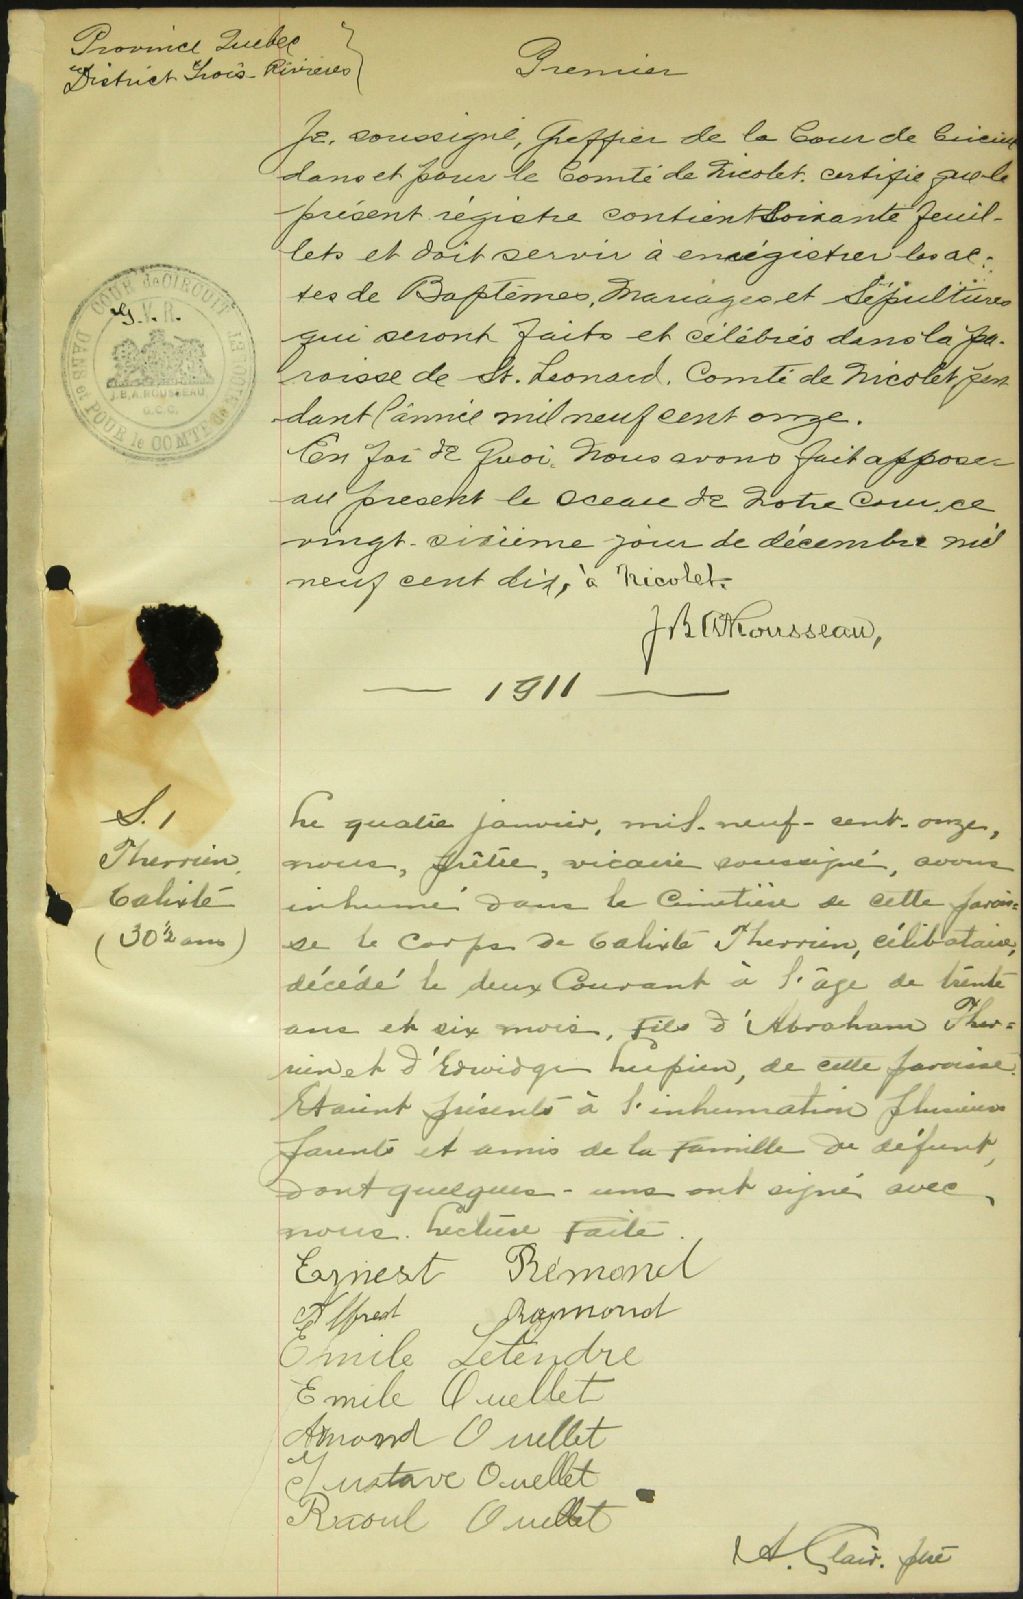 Province Quebec
District Trois-Rivières
Premier
Je, soussigné, Greffier de la Cour de Circuit
dans et pour le Comté de Nicolet. certifie que le
présent régistre contient Soixante feuil-
lets et doit servir à enrégistrer les ac-
tes de Baptêmes, Mariages et Sépultures
qui seront faits et célébrés dans la pa-
roisse de St. Leonard, Comté de Nicolet pen
dant l'année mil neuf cent onze.
En foi de Quoi, Nous avons fait apposer
au present le sceau de Notre Cour, ce
vingt-sixième jour de décembre mil
neuf cent dix, à Nicolet.
COUR de CIRCUIT
DANS et POUR le COMTÉ de NICOLET
G.V.R.
J.B.A. ROUSSEAU
G.C.C.
J B A Rousseau,
1911
S. 1
Therrien
Calixte
(30½ ans)
Le quatre janvier, mil-neuf-cent-onze,
nous, prêtre, vicaire soussigné, avons
inhumé dans le Cimetière de cette parois=
se le Corps de Calixte Therrien, célibataire,
décédé le deux Courant à l'âge de trente
ans et six mois, fils d'Abraham Ther=
rien et d'Edwidge Lupien, de cette paroisse.
Etaient présents à l'inhumation plusieurs
parents et amis de la famille du défunt,
dont quelques-uns ont signé avec
nous. Lecture faite.
Ernest Rémond
Alfred Raymond
Emile Letendre
Emile Ouellet
Armand Ouellet
Gustave Ouellet
Raoul Ouellet
A. Clair. ptre